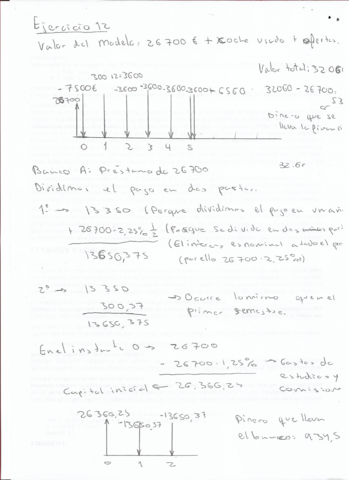 Ejercicio 12
Valor del modelo: 26700 € + coche usado + ofertas.
Valor total: 3206
300·12=3600
-7500€ -3600 -3600 -3600 -3600 + 6560
32060 - 26700
26700
Dinero que se
lleva la
0 1 2 3 4 5
Banco A: Préstamo de 26700
Dividimos el pago en dos partes.
1º → 13350 (Porque dividimos el pago en un año
+ 26700·2,25% 1/2 (Porque se divide en dos
(El interes es nominal a todo el
13650,375 por ello 26700·2,25%)
2º → 13350
300,37 → Ocurre lo mismo que en el
13650,375 primer semestre.
En el instante 0 → 26700
- 26700·1,25% → Gastos de
estudio y
Capital inicial ← 26,366,25 comisión
26360,25 -13650,57 -13650,37
Dinero que lleva
el banco: 934,5
0 1 2